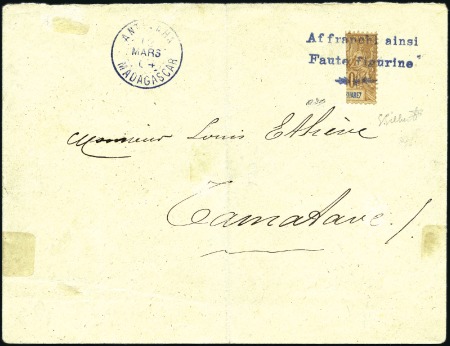 MARS
MADAGASCAR
Affranchi ainsi
Faute figurine
Monsieur Louis Ethève
Tamatave